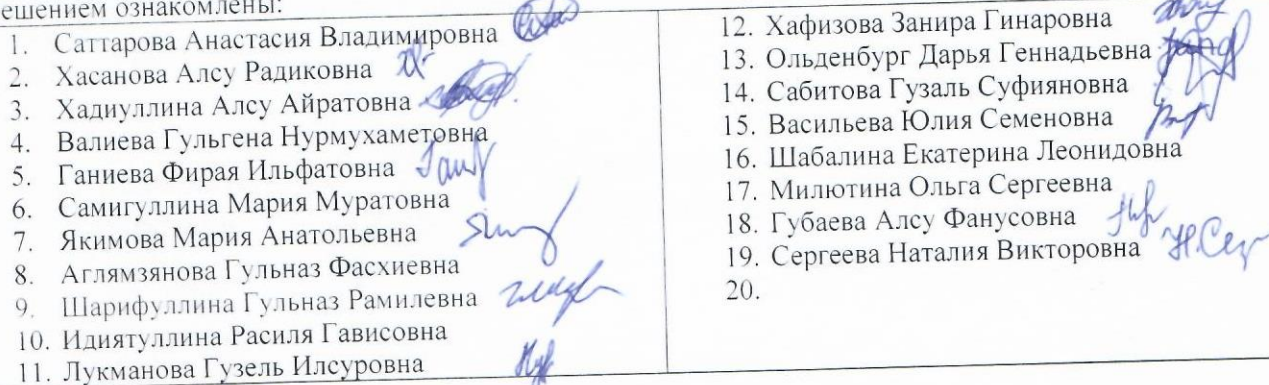 ешением ознакомлены:
1. Саттарова Анастасия Владимировна
2. Хасанова Алсу Радиковна
3. Хадиуллина Алсу Айратовна
4. Валиева Гульгена Нурмухаметовна
5. Ганиева Фирая Ильфатовна
6. Самигуллина Мария Муратовна
7. Якимова Мария Анатольевна
8. Аглямзянова Гульназ Фасхиевна
9. Шарифуллина Гульназ Рамилевна
10. Идиятуллина Расиля Гависовна
11. Лукманова Гузель Илсуровна
12. Хафизова Занира Гинаровна
13. Ольденбург Дарья Геннадьевна
14. Сабитова Гузаль Суфияновна
15. Васильева Юлия Семеновна
16. Шабалина Екатерина Леонидовна
17. Милютина Ольга Сергеевна
18. Губаева Алсу Фанусовна
19. Сергеева Наталия Викторовна
20.